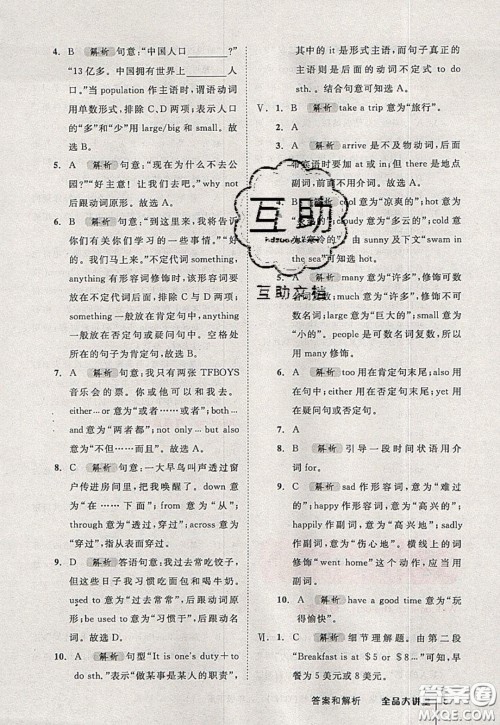 4. B 解析 句意:“中国人口________?”
“13亿多。中国拥有世界上________人
口。”当 population 作主语时,谓语动词
用单数形式,排除 C、D 两项;表示人口
的“多”和“少”用 large/big 和 small。故
选 B。
5. A 解析 句意:“现在为什么不去公
园?”“好主意!让我们去吧。”why not
后跟动词原形。故选 A。
6. B 解析 句意:“到这里来,我将告诉
你们有关你们学习的一些事情。”“好
的。我们马上来。”不定代词 something,
anything 有形容词修饰时,该形容词要放
在不定代词后面,排除 C 与 D 两项;
something 一般用在肯定句中,anything
一般用在否定或疑问句中。空格处
所在的句子为肯定句,故选 B。
7. A 解析 句意:我只有两张 TFBOYS
音乐会的票。你或者他可以和我一起去。
either … or 意为“或者……或者”;both …
and 意为“两者都”;not only … but
also 意为“不但……而且”。故选 A。
8. C 解析 句意:一大早鸟叫声透过窗
户传进房间里,把我唤醒了。down 意
为“在……下面”;from 意为“从”;
through 意为“透过,穿过”;across 意为
“穿过”,指表面穿过。故选 C。
9. D 解析 答语句意:我过去常吃饺子,
但这些日子我习惯吃面包和喝牛奶。
used to 意为“过去常常”,后跟动词原形;
be used to 意为“习惯于”,后跟动词-ing
形式。故选 D。
10. A 解析 句型“It is one's duty+to
do sth.”表示“做某事是某人的职责”,
其中的 it 是形式主语,而句子真正的
主语则是后面的动词不定式 to do
sth.。结合句意可知选 A。
Ⅴ. 1. B 解析 take a trip 意为“旅行”。
2. A
3. A 解析 arrive 是不及物动词,后
面接宾语时要用 at 或 in,但 there 是地点
副词,前面不用介词。故选 A。
4. B 解析 cool 意为“凉爽的”;hot 意为
“热的”;cloudy 意为“多云的”;cold
意为“寒冷的”。由 sunny 及下文“swam in
the sea”可知选 hot。
5. A 解析 many 意为“许多”,修饰可
数名词复数;much 意为“许多”,修饰不
可数名词;large 意为“巨大的”;small 意为
“小的”。people 是可数名词复数,所以
用 many 修饰。
6. A 解析 too 用在肯定句末尾;also 用
在句中;either 用在否定句末尾;yet 用
于疑问句或否定句。
7. B
8. B 解析 引导一段时间状语用介
词 for。
9. C 解析 sad 作形容词,意为“伤心
的”;happy 作形容词,意为“高兴的”;
happily 作副词,意为“高兴地”;sadly
作副词,意为“伤心地”。横线上的词修
饰“went home”这个动作,应用副
词,且前面意为
10. A 解析 have a good time 意为“玩得
愉快”。
Ⅵ. 1. C 解析 细节理解题。由第二段
“Breakfast is at $5 or $8…”可知,
早餐为 5 美元或 8 美元。
互助
互助文档
答案和解析 全品大讲堂